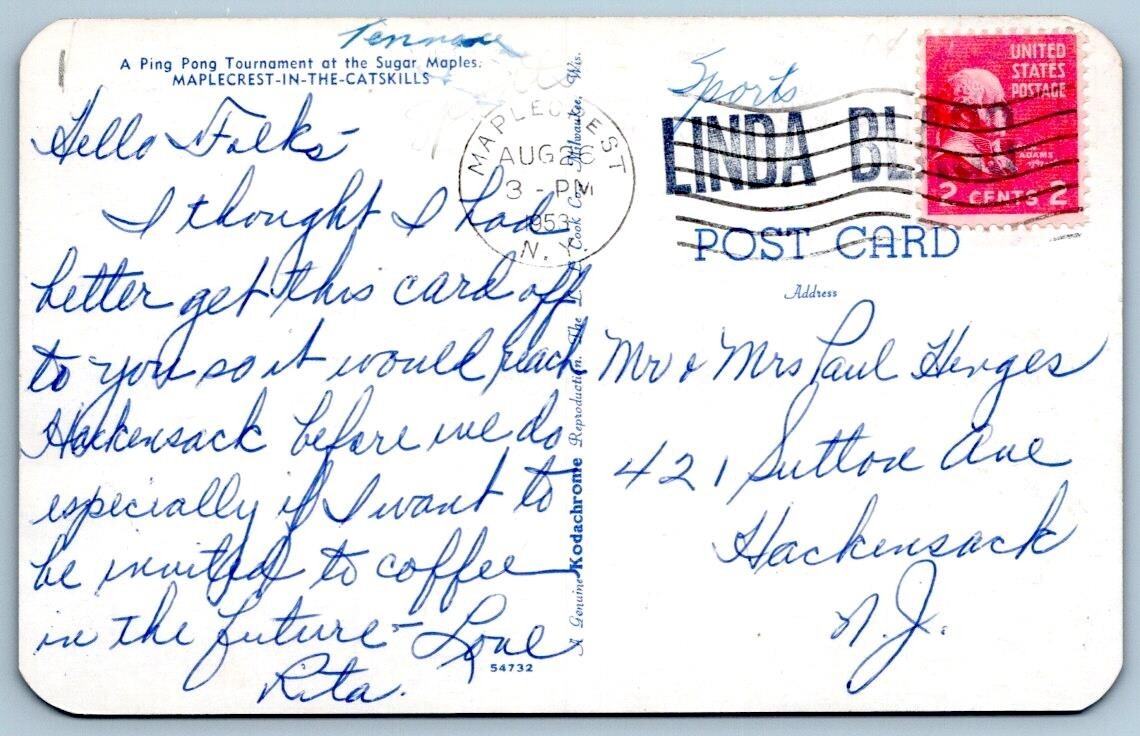 A Ping Pong Tournament at the Sugar Maples.
MAPLECREST-IN-THE-CATSKILLS
Hello Folks-
I thought I had
better get this card off
to you so it would reach
Hackensack before we do
especially if I want to
be invited to coffee
in the future - Love
Rita.
54732
MAPLECREST
AUG 26
3 - PM
1953
N. Y.
A Genuine Kodachrome Reproduction. The L. L. Cook Co., Milwaukee, Wis.
Sports
LINDA BL
UNITED
STATES
POSTAGE
ADAMS
2 CENTS 2
POST CARD
Address
Mr & Mrs Paul Henges
421 Sutton Ave
Hackensack
N.J.